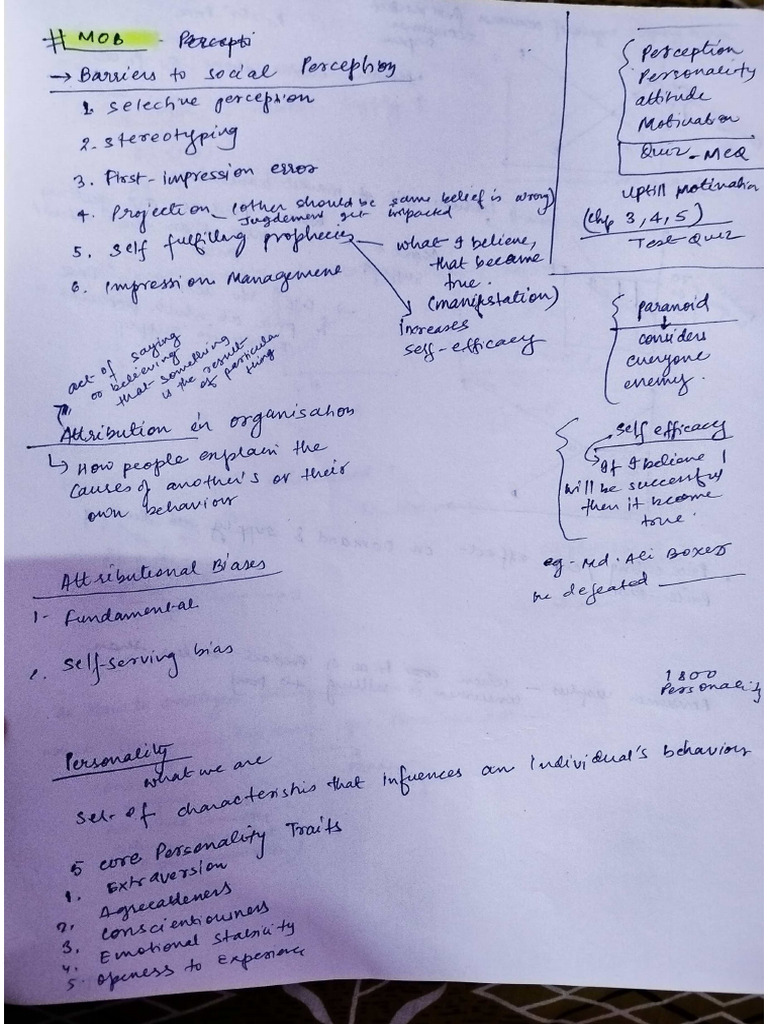 # MOB - Percepti
→ Barriers to social Perception
1. selective perception
2. stereotyping
3. First-impression error
4. Projection - (other should be same belief is wrong)
Jugdement get impacted
5. Self fulfilling prophecies - what I believe,
that became
true.
(manifestation)
Increases
self-efficacy
6. Impression Management
Perception
Personality
attitude
Motivation
Quiz - MCQ
uptill motivation
(Chp 3,4,5)
Test-Quiz
paranoid
considers
everyone
enemy.
self efficacy
If I believe I
will be successful
then it become
true.
eg- Md. Ali Boxer
he defeated
act of saying
or believing
that something
is the result
of particular
thing
Attribution in organisation
↳ How people explain the
causes of another's or their
own behaviour
Attributional Biases
1- Fundamental
2. Self-serving bias
1800
Personality
Personality
what we are
set of characteristics that influences an Individual's behaviour
5 core Personality Traits
1. Extraversion
2. Agreeableness
3. Conscientiousness
4. Emotional stability
5. Openess to Experience